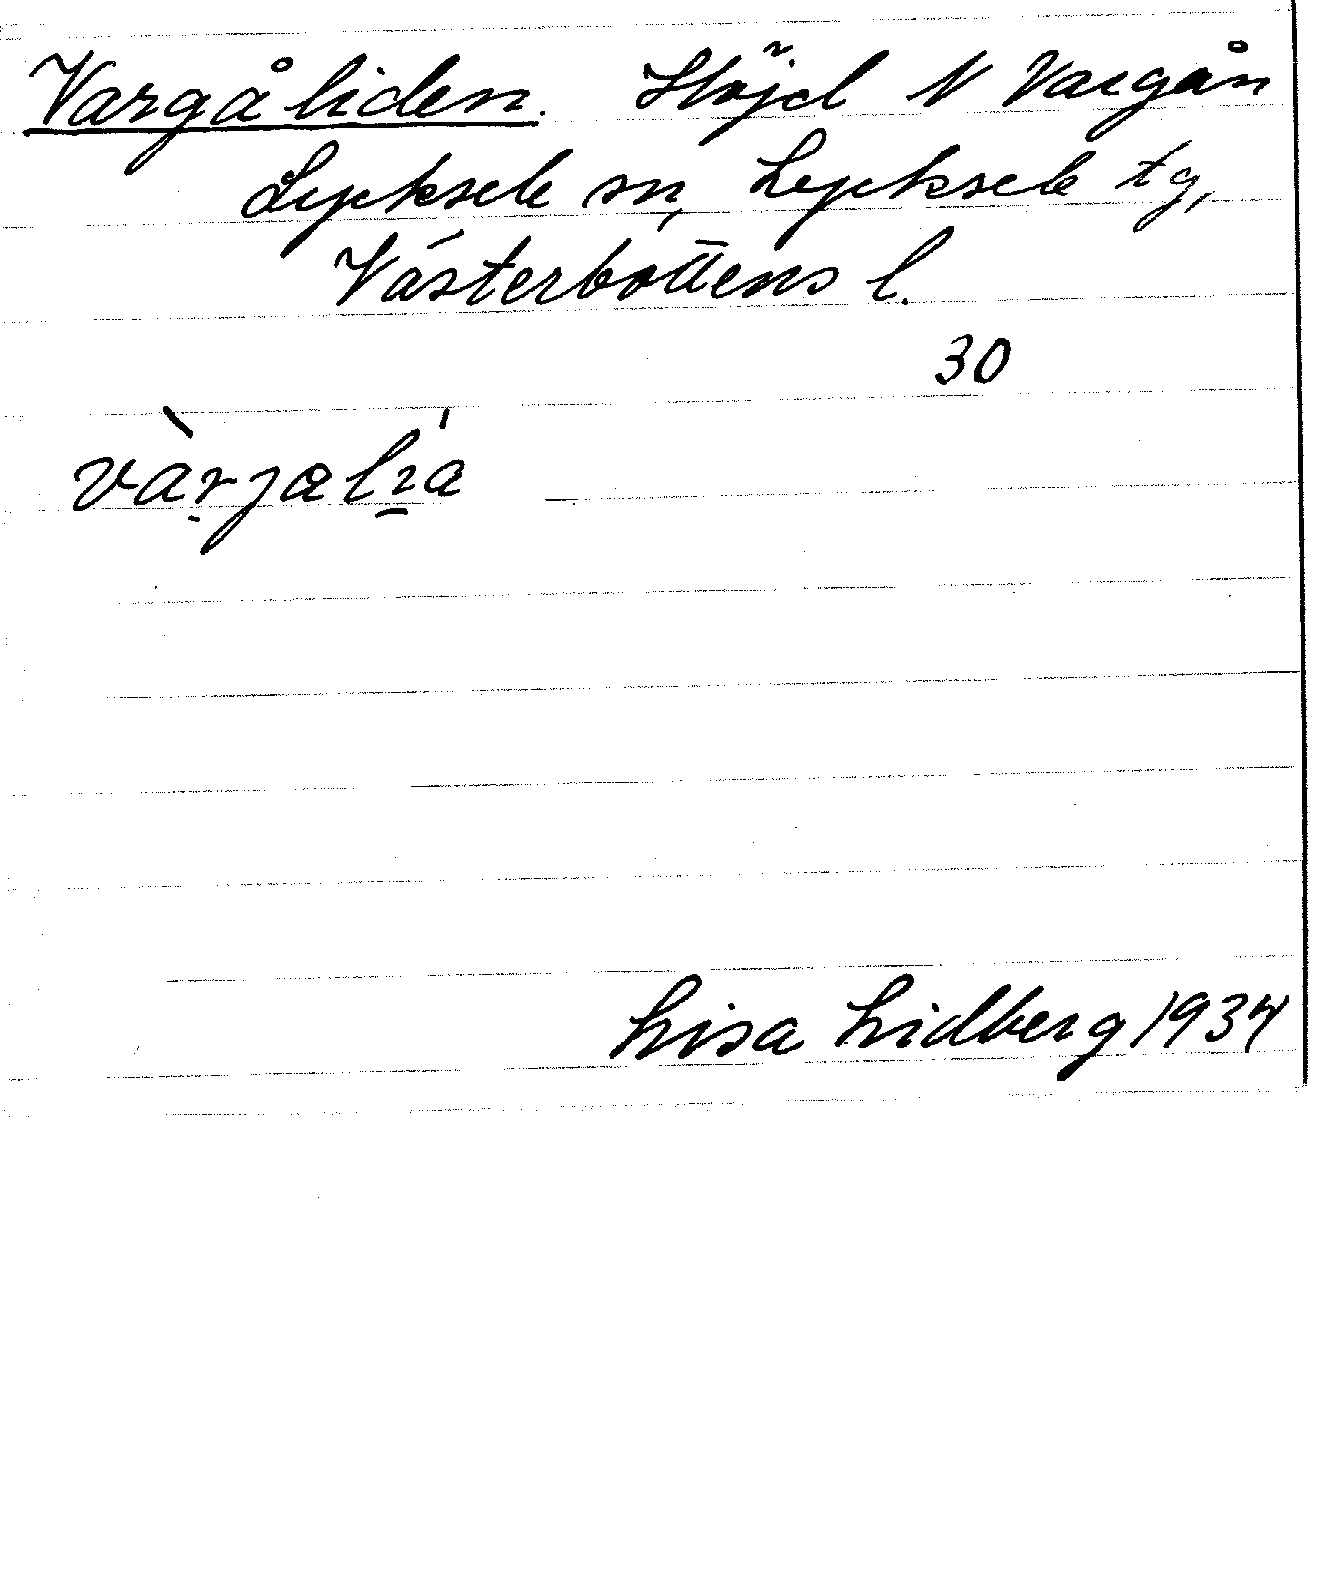 Vargåliden. Höjd N Vargån
Lycksele sn, Lycksele tg,
Västerbottens l.
30
Lisa Lidberg 1934